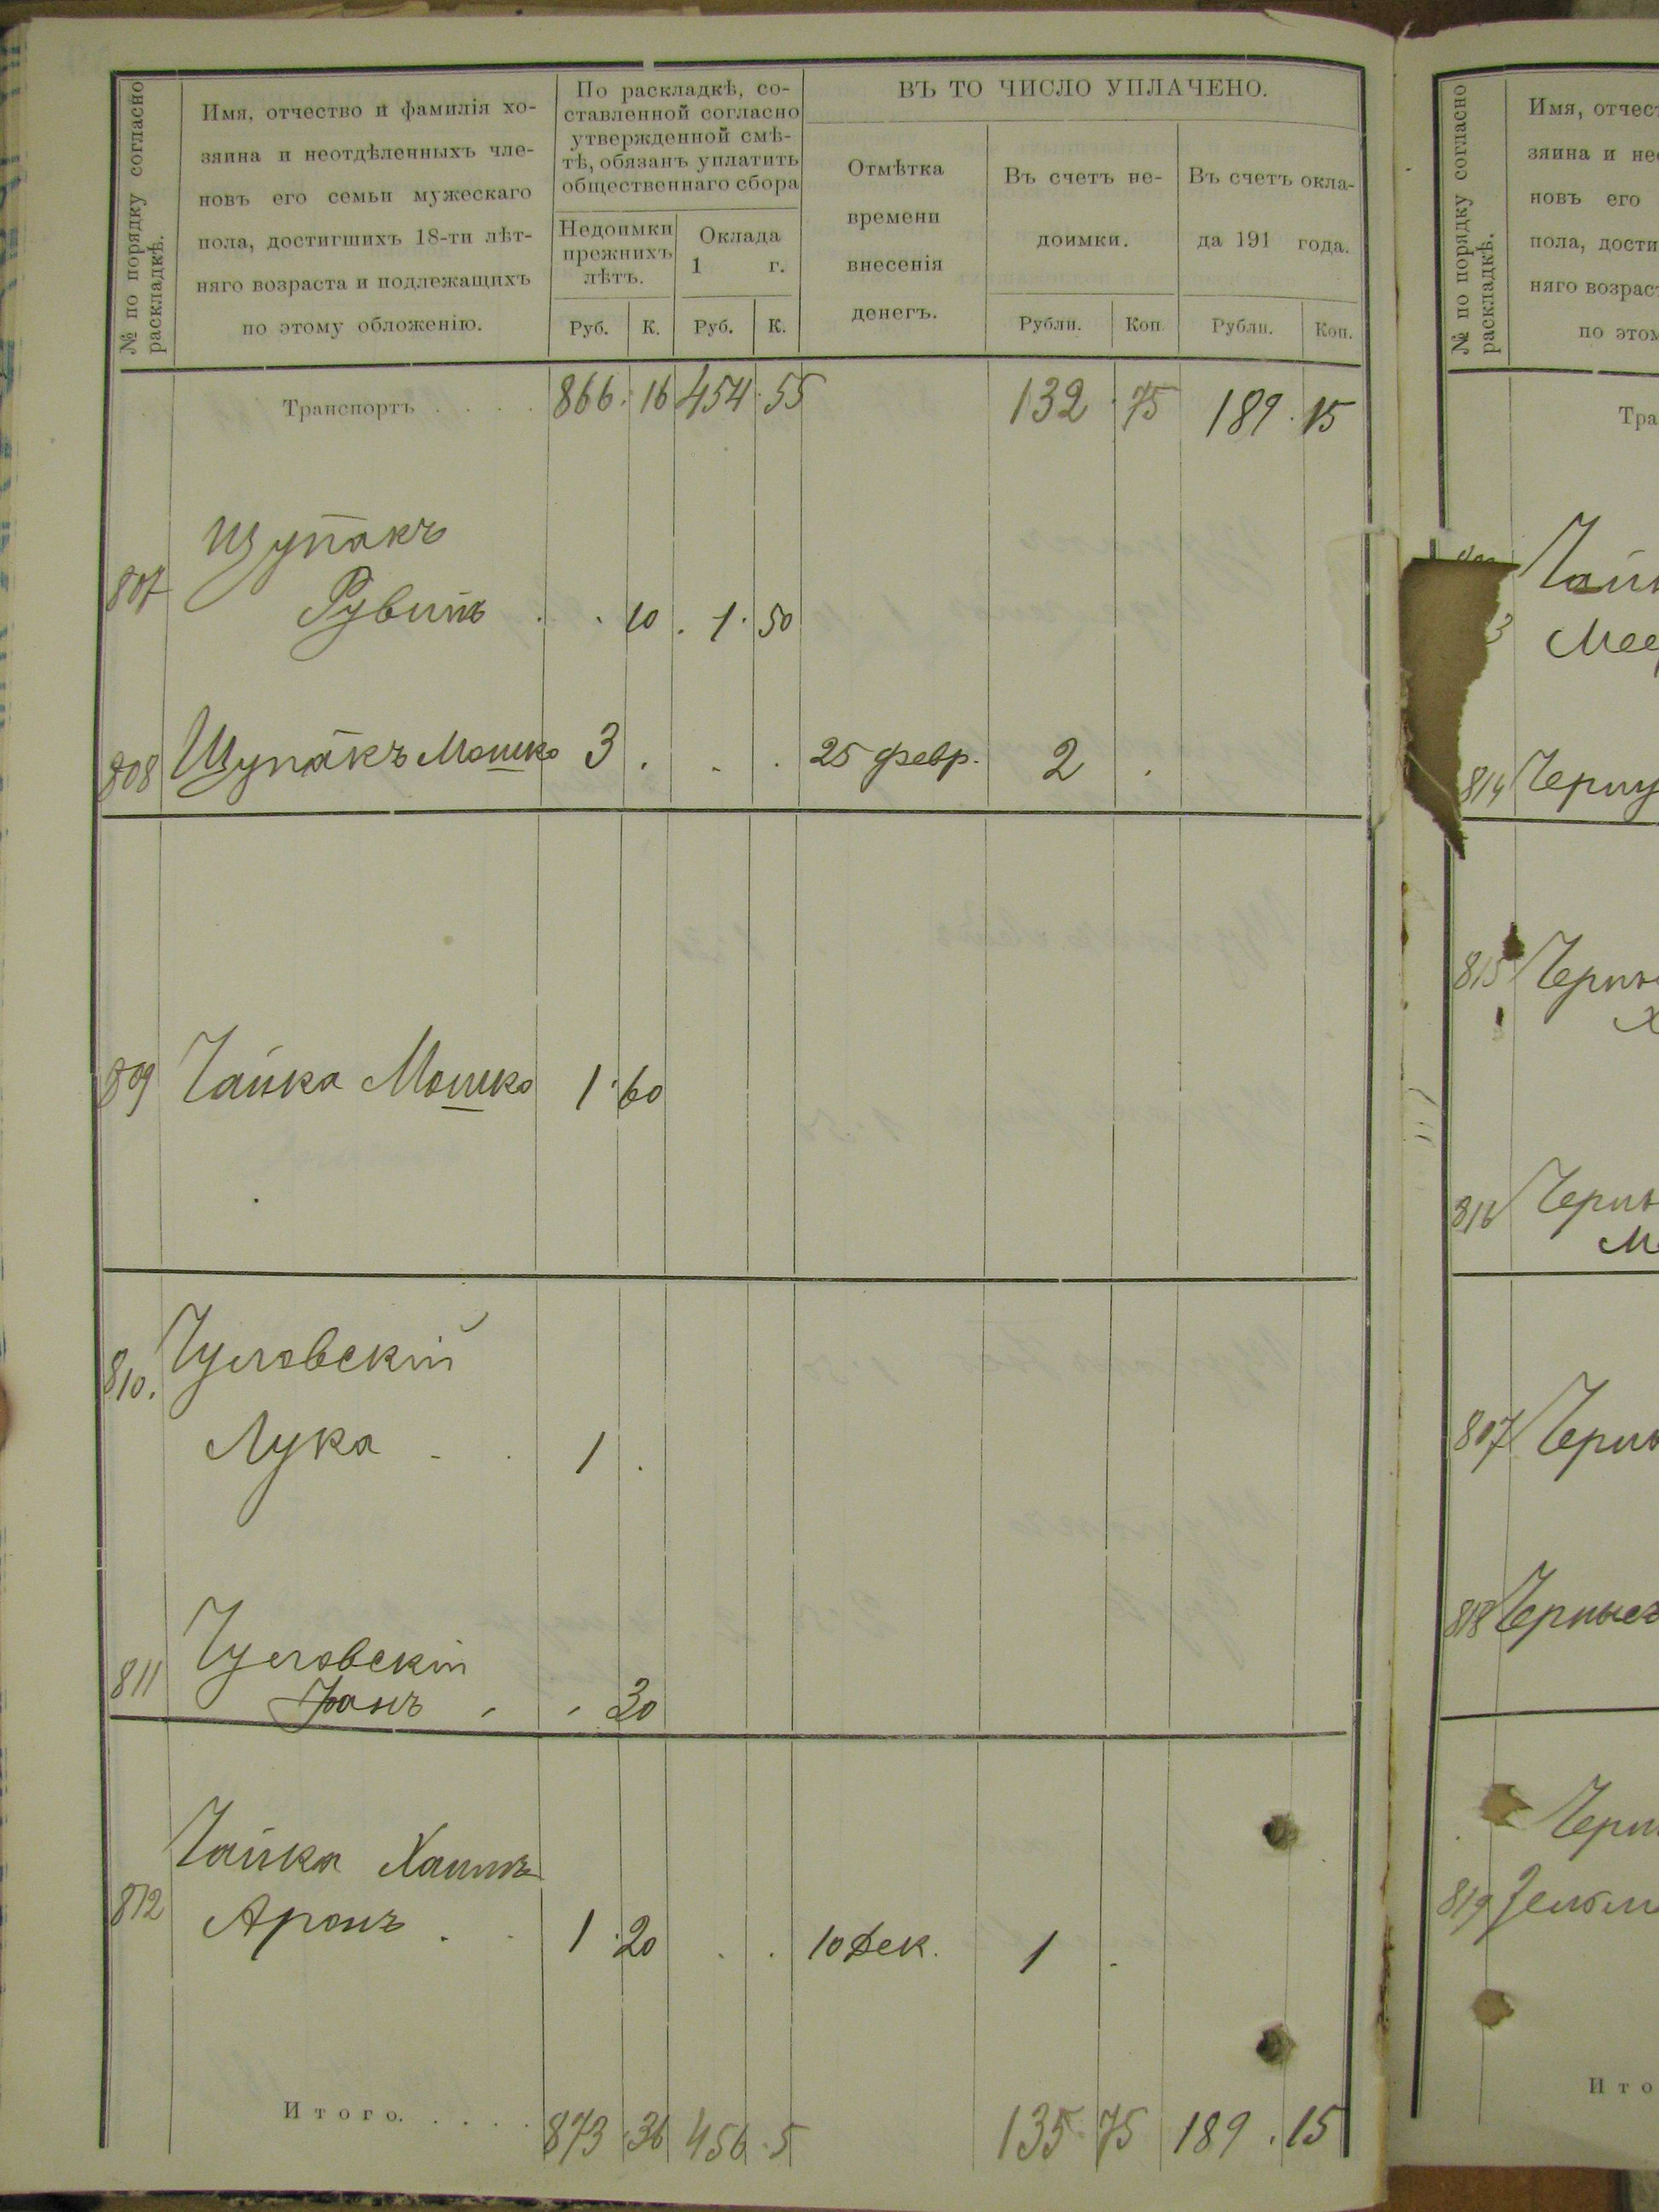 № по порядку согласно
раскладкѣ.
Имя, отчество и фамилія хо-
зяина и неотдѣленныхъ чле-
новъ его семьи мужескаго
пола, достигшихъ 18-ти лѣт-
няго возраста и подлежащихъ
по этому обложенію.
По раскладкѣ, со-
ставленной согласно
утвержденной смѣ-
тѣ, обязанъ уплатить
общественнаго сбора
Недоимки
прежнихъ
лѣтъ.
Оклада
1 г.
Руб. К. Руб. К.
ВЪ ТО ЧИСЛО УПЛАЧЕНО.
Отмѣтка
времени
внесенія
денегъ.
Въ счетъ не-
доимки.
Рубли. Коп.
Въ счетъ окла-
да 191 года.
Рубли. Коп.
Транспортъ . . . . 866 . 16 454 . 55 132 . 75 189 . 15
Щупакъ
807 Рувинъ . . 10 . 1 . 50
808 Щупакъ Мошко 3 . . . 25 февр. 2 .
809 Чайка Мошко 1 . 60
810. Чуловскій
Лука 1 .
811 Чуловскій
. 20
Чайка Хаимъ
812 Аронъ . . 1 . 20 . . 10 Дек. 1 .
Итого. . . . . 873 . 36 456 . 5 135 . 75 189 . 15
№ по порядку согласно
раскладкѣ.
Имя, отчес
зяина и не
новъ его
пола, дости
няго возрас
по этом
Тра
Чайк
3 Меер
814 Черну
815 Черн
Х
816 Черн
М
807 Черн
818 Черны
Черн
819 Зельм
Ито